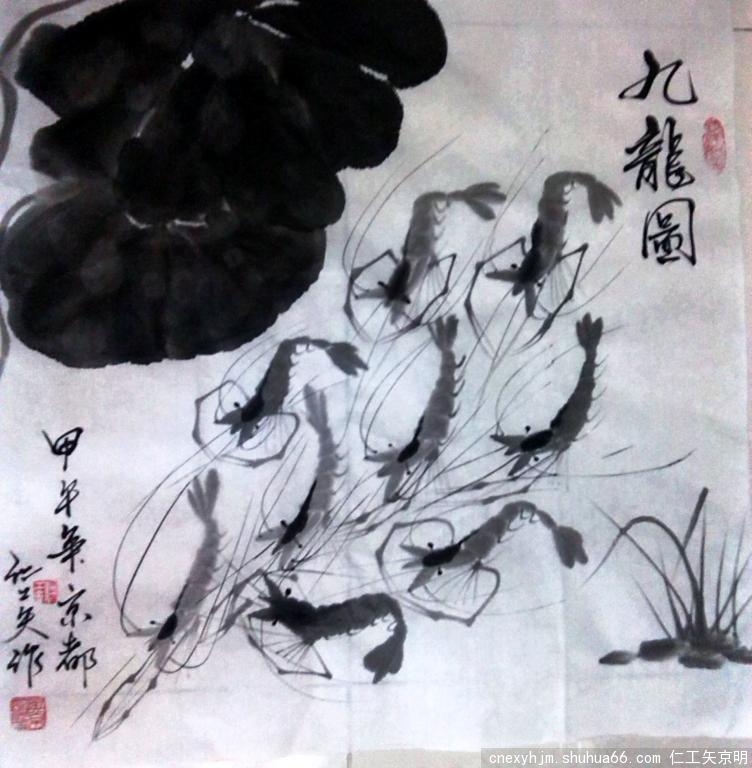 九龍圖
甲午年京都
仁工矢作
cnexyhjm.shuhua66.com 仁工矢京明